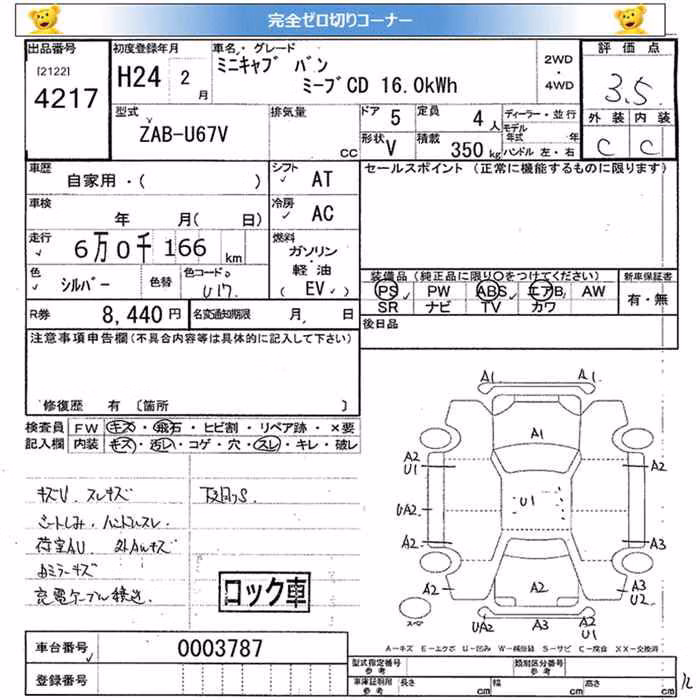 完全ゼロ切りコーナー
出品番号
[2122]
4217
初度登録年月
H24 2月
車名・グレード
ミニキャブ バン
ミーブCD 16.0kWh
2WD
・
4WD
評価点
3.5
外装 内装
C C
型式
ZAB-U67V
排気量
CC
ドア 5
定員 4人
形状 V
積載 350kg
ディーラー・並行
モデル年式 年
ハンドル 左・右
車歴
自家用・( )
シフト
AT
車検
年 月( 日)
冷房
AC
走行
6万0千166km
燃料
ガソリン
・
軽油
(EV)
色
シルバー
色替
色コードNo
U17
R券
8,440円
名変通知期限 月 日
セールスポイント (正常に機能するものに限ります)
装備品 (純正品に限り〇をつけてください)
PS PW ABS エアB AW
SR ナビ TV カワ
新車保証書
有・無
後日品
注意事項申告欄(不具合内容等は具体的に記入して下さい)
修復歴 有 〔箇所 〕
検査員記入欄
FW キズ・飛石・ヒビ割・リペア跡・×要
内装 キズ・汚レ・コゲ・穴・スレ・キレ・破レ
キズU スレキズ
シートしみ・ハンドルスレ
荷室AU
ミラーキズ
充電ケーブル接送
下廻りS
ロック車
A1 A1
A1
A2
U1
A2
U1
UA2
A2
A3
A2
A2
A3
U2
UA2
A3
U1
スペア
A-キズ E-エクボ U-凹み W-補修跡 S-サビ C-腐食 XX-交換済
車台番号
0003787
登録番号
型式指定番号
参考
類別区分番号
参考
車庫証明用
参考
長さ cm
幅 cm
高さ cm